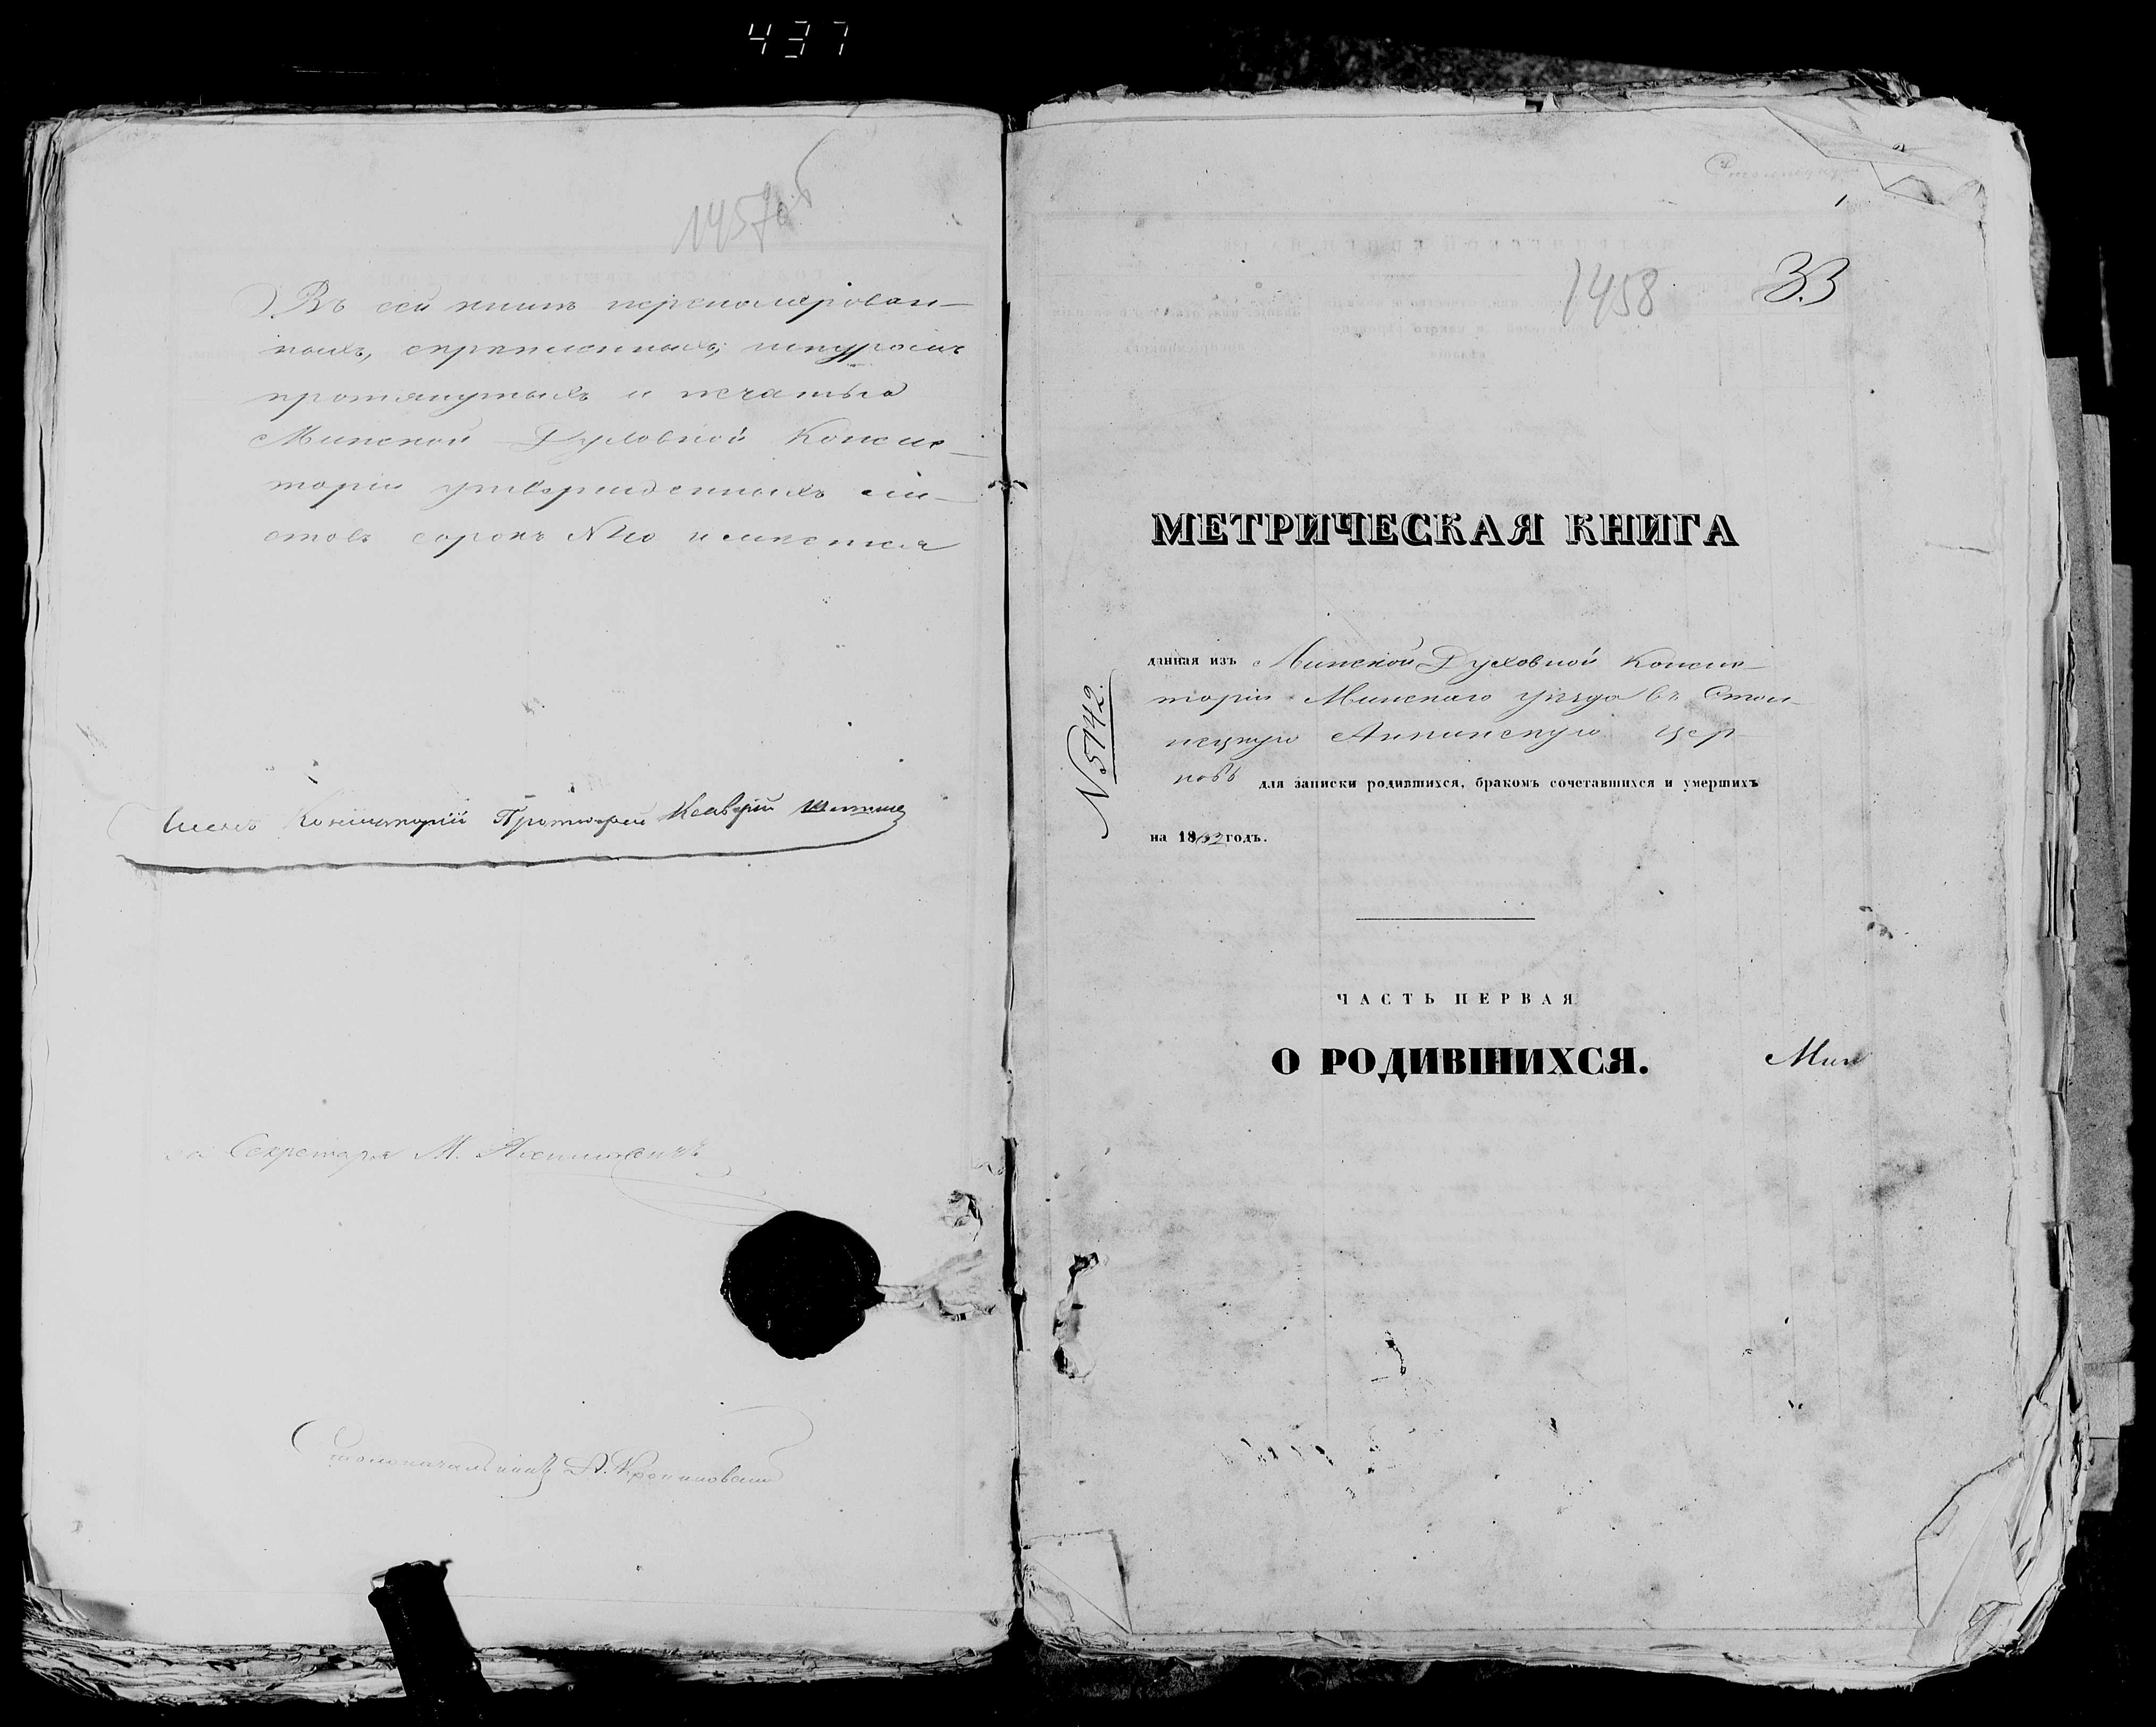 437
1457об
Въ сей книгѣ перенумерован-
ныхъ, скрѣпленныхъ, шнуромъ
протянутыхъ и печатью
Минской Духовной Консис-
торіи утвержденныхъ лис-
товъ сорокъ №40 имѣется
Членъ Консисторіи Протоіерей Ксаверій
за Секретаря М.
Столоначальникъ
1
1458 33
МЕТРИЧЕСКАЯ КНИГА
данная изъ Минской Духовной Консис-
торіи Минскаго уѣзда въ Стол-
пецкую Аннинскую цер-
ковь для записки родившихся, бракомъ сочетавшихся и умершихъ
N 5142.
на 1862 годъ.
ЧАСТЬ ПЕРВАЯ
О РОДИВШИХСЯ.
Мин